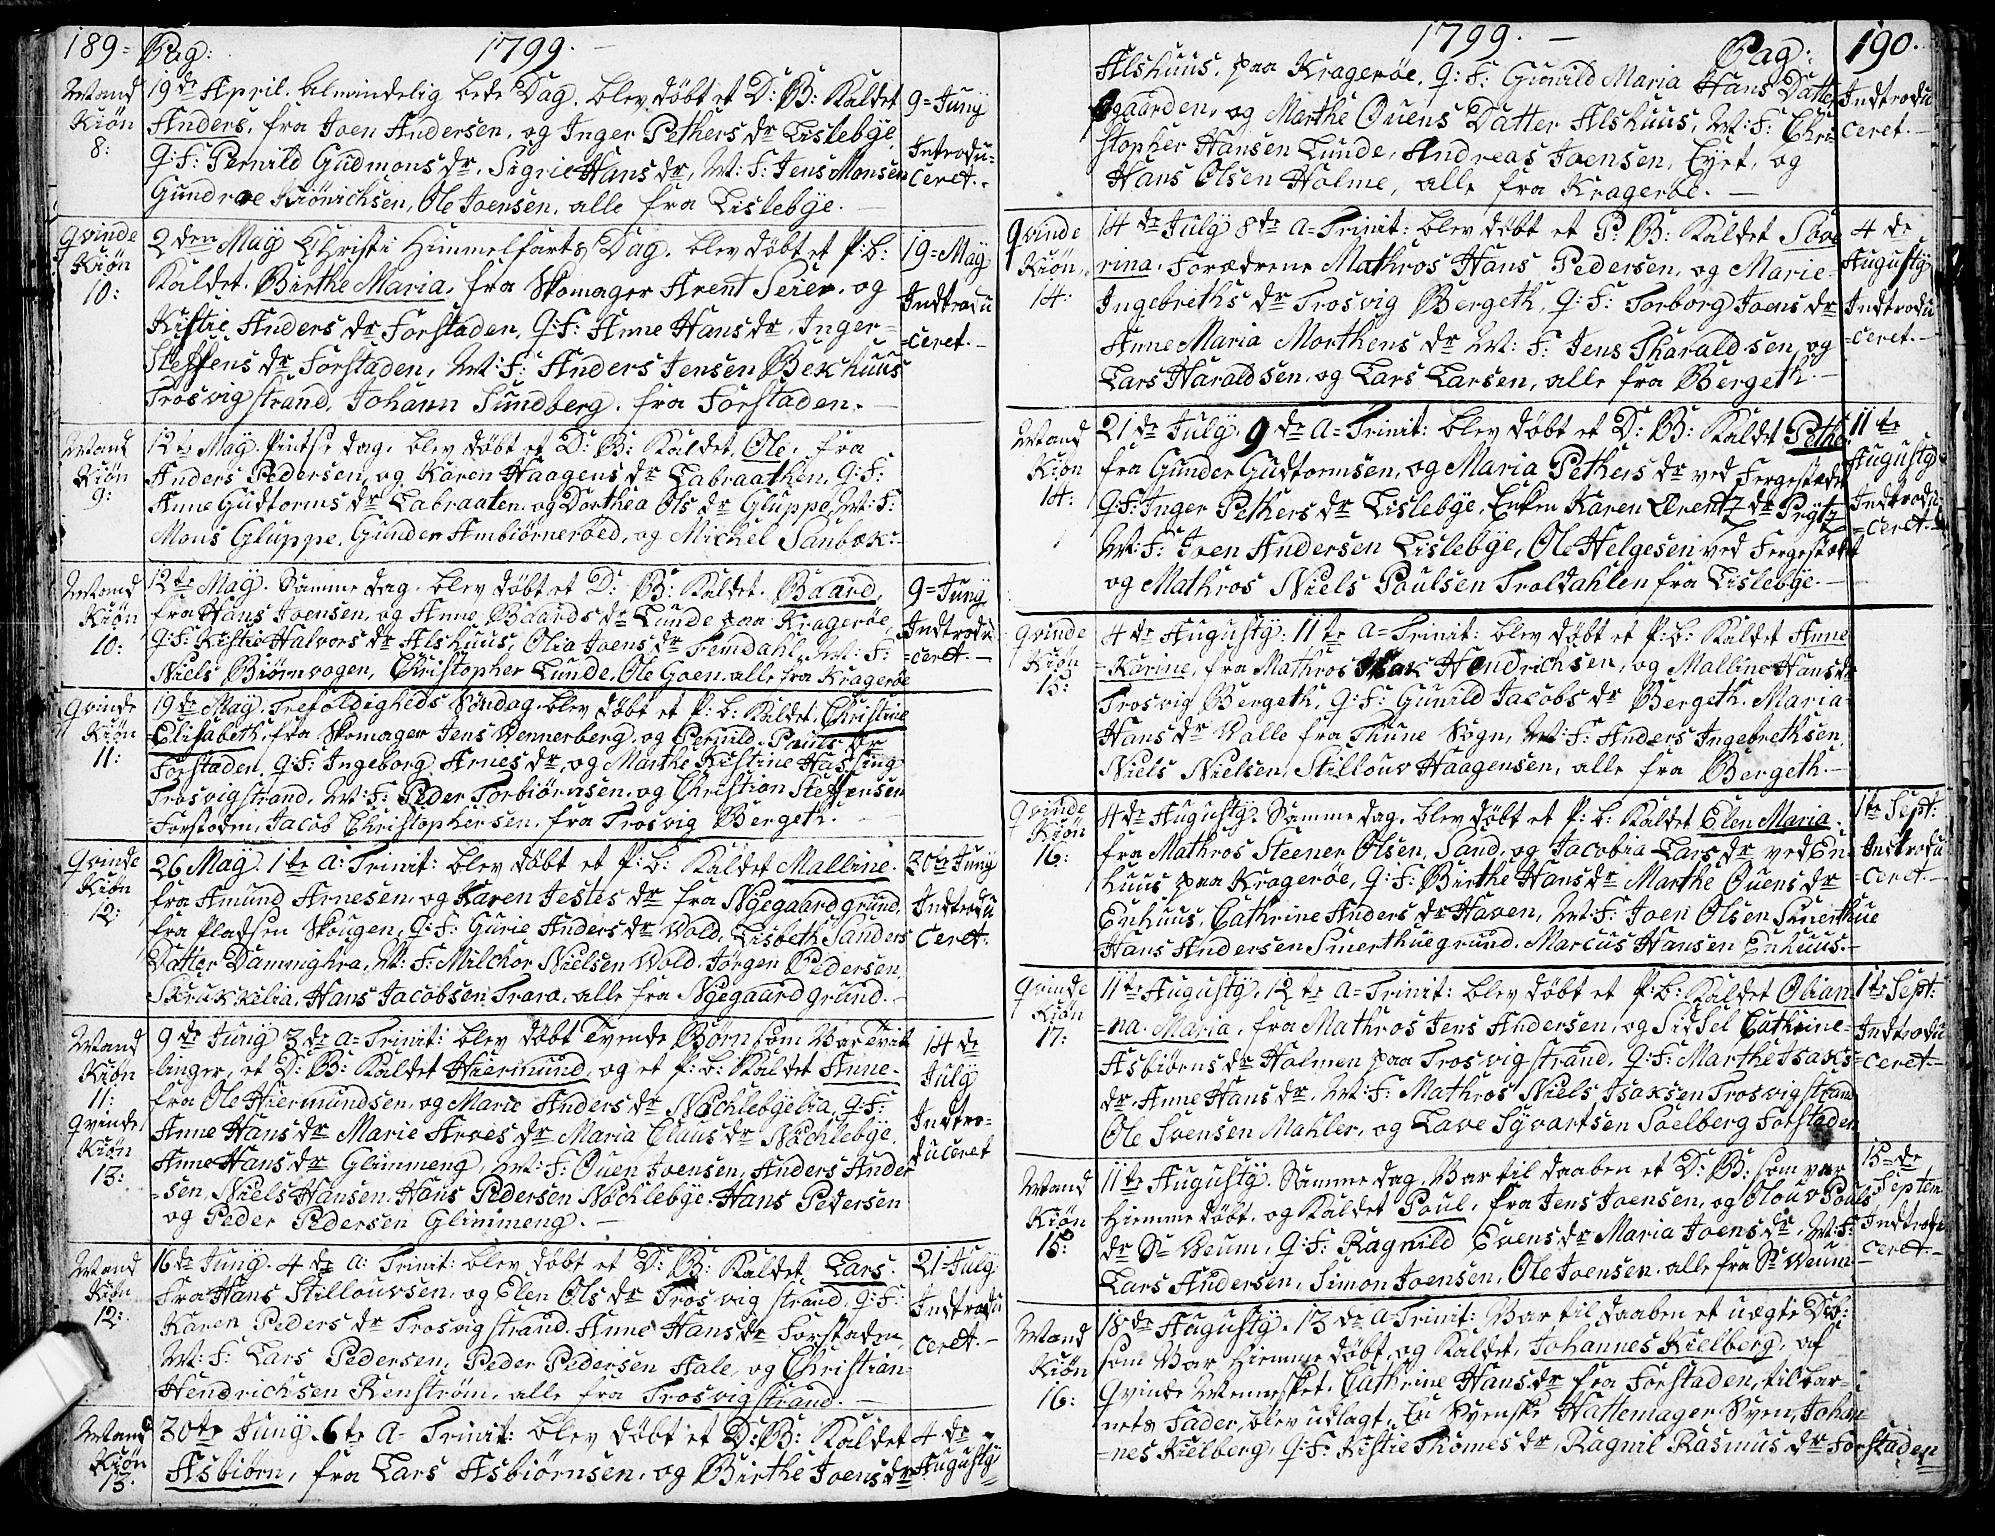 189= Pag: 1799.
Mand
Kiøn
8:
19de April. Almindelig bede Dag. blev døbt et D: B: Kaldet
Anders, fra Joen Andersen, og Inger Pethers dr Lislebye,
Q: F: Pernild Gudmons dr, Sigrie Hans dr, M: F: Jens Monsen
Gundroe Kiønichsen, Ole Joensen, alle fra Lislebye.
9=Juny
Introdu=
ceret.
Qvinde
Kiøn
10:
2den May Christi Himmelfarts Dag. blev døbt et P: b:
Kaldet. Birthe Maria, fra Skomager Arent Peier, og
Kistie Anders dr Forstaden, Q: F: Anne Hans dr, Inger=
Steffens dr Forstaden, M: F: Anders Jensen Bekhuus
Trosvigstrand, Johann Sundberg, fra Forstaden.
19=May
Indtrodu
=ceret.
Mand
Kiøn
9:
12te May. Pintse dag. blev døbt et D: B: Kaldet, Ole, fra
Anders Pedersen, og Karen Haagens dr Labraathen, Q: F:
Anne Gudtorms dr Labraaten og Dorthea Ols dr Gluppe, M: F:
Mons Gluppe, Gunder Ambiørnerøed, og Michel Sandbæk.
Mand
Kiøn
10:
12te May. Samme dag. blev døbt et D: B: Kaldet. Baard,
fra Hans Joensen, og Anne Baards dr Lunde paa Kragerøe,
Q: F: Kistie Halvors dr Alshuus, Olia Joens dr Femdahl, M: F:
Niels Biørnvogen, Christopher Lunde, Ole Goen. alle fra Kragerøe
9=Juny
Indtrodu
=ceret.
Qvinde
Kiøn
11:
19de May. Trefoldigheds Søndag. blev døbt et P: b: Kaldet, Christine
Elisabeth. fra Skomager Jens Wennerberg, og Pernild Pauls dr
Forstaden, Q: F: Ingeborg Arnes dr, og Marthe Kistine Hassing
Trosvigstrand, M: F: Peder Torbiørnsen, og Christion Steffensen
Forstaden, Jacob Christophersen. fra Trosvig Bergeth.
Qvinde
Kiøn
12:
26 May. 1te a: Trinit: blev døbt et P: b: Kaldet Malline.
fra Amund Arnesen, og Karen Jestes dr fra Nyegaard grund,
fra Pladsen Skougen, Q: F: Gurie Anders dr Wold, Lisbeth Sanders
Datter Dammyhra, M: F: Milchor Nielsen Wold. Jørgen Pedersen,
Skrukkelia, Hans Jacobsen Trara, alle fra Nyegaard grund.
30te Juny
Indtrodu
ceret.
Mand
Kiøn
11:
Qvinde
Kiøn
13:
9de Juny 3de a= Trinit: blev døbt Tvende Børn som Var Tvil
linger, et D: B: Kaldet Hiermund, og et P: b: Kaldet Anne.
fra Ole Hiermundsen, og Marie Anders dr Nøchlebyelia, Q: F:
Anne Hans dr Marie Arves dr Maria Claus dr Nøchlebye,
Anne Hans dr Glimmeng, M: F: Ouen Joensen, Anders Ander
=sen, Niels Hansen, Hans Pedersen Nøchlebye, Hans Pedersen
og Peder Pedersen Glimmeng.
14de
July
Indtro=
duceret
Mand
Kiøn
12:
16de Juny. 4de a: Trinit: blev døbt et D: B: Kaldet Lars.
Fra Hans Stillouvsen, og Elen Ols dr Trosvigstrand, Q: F:
Karen Peders dr Trosvigstrand. Anne Hans dr Forstaden
M: F: Lars Pedersen, Peder Pedersen Hale, og Christian
Hendrichsen Renstrøm, alle fra Trosvigstrand.
21 July
Indtrodu
ceret.
Mand
Kiøn
13.
30te Juny. 6te a= Trinit: blev døbt et D: B: Kaldet
Asbiørn, fra Lars Asbiørnsen, og Birthe Joens dr
4de
Augusty
1799. Pag: 190.
Alshuus, paa Kragerøe, Q: F: Gunild Maria Hans Datte
gaarden, og Marthe Ouens Datter Alshuus, M: F: Chri
stopher Hansen Lunde, Andreas Joensen, Eyet, og
Hans Olsen Holme, alle fra Kragerøe.
Indtrodu
ceret.
Qvinde
Kiøn
14:
14de July 8de a=Trinit: blev døbt et P: B: Kaldet Seve
rina. Forædrene Mathros Hans Pedersen, og Marie=
Ingebreths dr Trosvig Bergeth, Q: F: Torborg Joens dr
Anne Maria Morthens dr M: F: Jens Tharaldsen, og
Lars Haraldsen, og Lars Larsen, alle fra Bergeth.
4de
Augusty
Indtrodu
=ceret.
Mand
Kiøn
14:
21de July. 9de a=Trinit: blev døbt et D: B: Kaldet Pether
fra Gunder Gudtormsen, og Maria Pethers dr ved Fergestedet
Q: F: Inger Pethers dr Lislebye, Enken Karen Arentz dr Prytz
M: F: Joen Andersen Lislebye, Ole Helgesen ved Fergestedet
og Mathros Niels Poulsen Troldahlen fra Lislebye.
11te
Augusty
Indtrodu
=ceret.
Qvinde
Kiøn
15:
4de Augusty. 11te a=Trinit: blev døbt et P: b: Kaldet Anne
=Karine, fra Mathros Isak Hendrichsen, og Malline Hans dr
Trosvig Bergeth, Q: F: Gunild Jacobs dr Bergeth. Maria
Hans dr Valle fra Thune Sogn, M: F: Anders Ingebrethsen,
Niels Nielsen, Stillouv Haagensen, alle fra Bergeth.
Qvinde
Kiøn
16:
4de Augusty. Samme dag. blev døbt et P: b: Kaldet Elen Maria.
fra Mathros Steener Olsen, Sand, og Jacobia Lars dr ved En=
huus paa Kragerøe, Q: F: Birthe Hans dr Marthe Ouens dr
Enhuus, Cathrine Anders dr Haven, M: F: Joen Olsen Smerthue
Hans Andersen Smerthuegrund. Marcus Hansen Enhuus.
1te Sept:
Indtrodu
=ceret.
Qvinde
Kiøn
17:
11te Augusty. 12te a=Trinit: blev døbt et P: b: Kaldet Olian=
=na. Maria, fra Mathros Jens Andersen, og Sissel Cathrine=
Asbiørns dr Holmen paa Trosvigstrand, Q: F: Marthe Isaks=
dr, Anne Hans dr. M: F: Mathros Niels Isaksen Trosvigstrand
Ole Svensen Mahler, og Lave Syvartsen Soelberg Forstaden
1te Sept:
Indtrodu
=ceret.
Mand
Kiøn
15:
11te Augusty. Samme dag. Var til daaben et D: B: som var
Hiemme døbt. og Kaldet Poul, fra Jens Joensen, og Olouv Pouls
dr Sr Weum, Q: F: Ragnild Evens dr Maria Joens dr. M: F:
Lars Andersen, Simon Joensen, Ole Joensen. alle fra Sr Weum
15=de
Septem
Indtrodu
ceret.
Mand
Kiøn
16:
18de Augusty. 13de a=Trinit: Var til daaben et uægte D: b:
som Var Hiemme døbt, og Kaldet, Johannes Kielberg, af
Qvinde Mennesket. Cathrine Hans dr fra Forstaden, til bar=
nets Fader, blev udlagt. En Svenske Hattemager Sven, Johan
=nes Kielberg, Q: F: Kistie Thomes dr, Ragnil Rasmus dr Forstaden